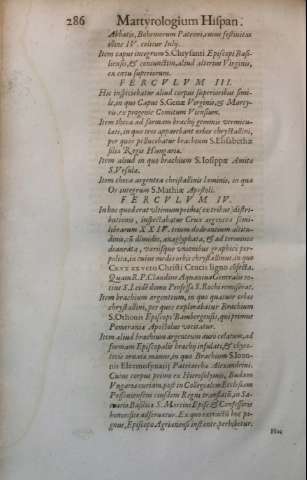 286 Martyrologium Hispan.
Abbatis, Bohemorum Patroni, cuius festiuitas
illine IV. colitur Iulij.
Item caput integrum S. Chrysanti Episcopi Basi-
liensis, & coniunctim, aliud alterius Virginis,
ex cœtu superiorum.
FERCVLVM III.
Hic inspiciebatur aliud corpus superioribus simi-
le, in quo Caput S. Genæ Virginis, & Marty-
ris, ex progenie Comitum
Item theca ad formam brachij gemmis vermicu-
lata, in quo tres apparebant orbes chrystallini,
per quos pellucebatur brachium S. Elisabethæ
filiæ Regis Hungariæ.
Item aliud in quo brachium S. Iosippæ Amitæ
S. Vrsulæ.
Item theca argentea christallinis luminis, in qua
Os integrum S. Mathiæ Apostoli.
FERCVLVM IV.
In hoc quod erat vltimum primæ, ex tribus distri-
butionis, inspectabatur Crux argentea simi-
librarum XXIV. trium dodrantium altitu-
dinis, & dimidie, anaglyphata, & ad tenacitate
deaurata, variisque vnionibus graphicè per-
polita, in cuius medio orbis christallinus, in quo
Crux ex vero Christi Crucis ligno dissecta.
Quam R.P. Claudine Aquauiua Generalis to-
tius S. Iesu domui Professæ S. Rochi transferat.
Item brachium argenteum, in quo quatuor orbes
chrystallini, per quos explorabatur Brachium
S. Othonis Episcopi Bambergensis, qui primus
Pomerania Apostolus vocitatur.
Item aliud brachium argenteum auro celatum, ad
formam Episcopalis brachij insulati, & chyro-
thecis ornata manus, in quo Brachium S. Ioan-
nis Eleemosynarij Patriarchæ Alexandrini.
Cuius corpus primo ex Hierosolymis, Budam
Vngariæ curiam, post in Collegialem Ecclesiam
Posoniensem eiusdem Regni translatū, in Sa-
crario Basilica S. Martini Epise. & Confessoris
honorificè adseruatur. Ex quo extractū hoc pi-
gnus, Episcopo Agriensis instante, perhibetur.
Hac